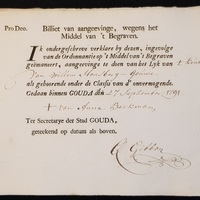 Pro Deo. Billiet van aangeevinge, wegens het
Middel van 't Begraven.
IK ondergeschreve verklare by dezen, ingevolge
van de Ordonnantie op 't Middel van 't Begraven
geëmaneert, aangeevinge te doen van het Lyk van
't kind
van Willem
als gehoorende onder de Classis van d'onvermogende.
Gedaan binnen GOUDA den 27 September 1791
van Anna
Ter Secretarye der Stad GOUDA,
geteekend op datum als boven.